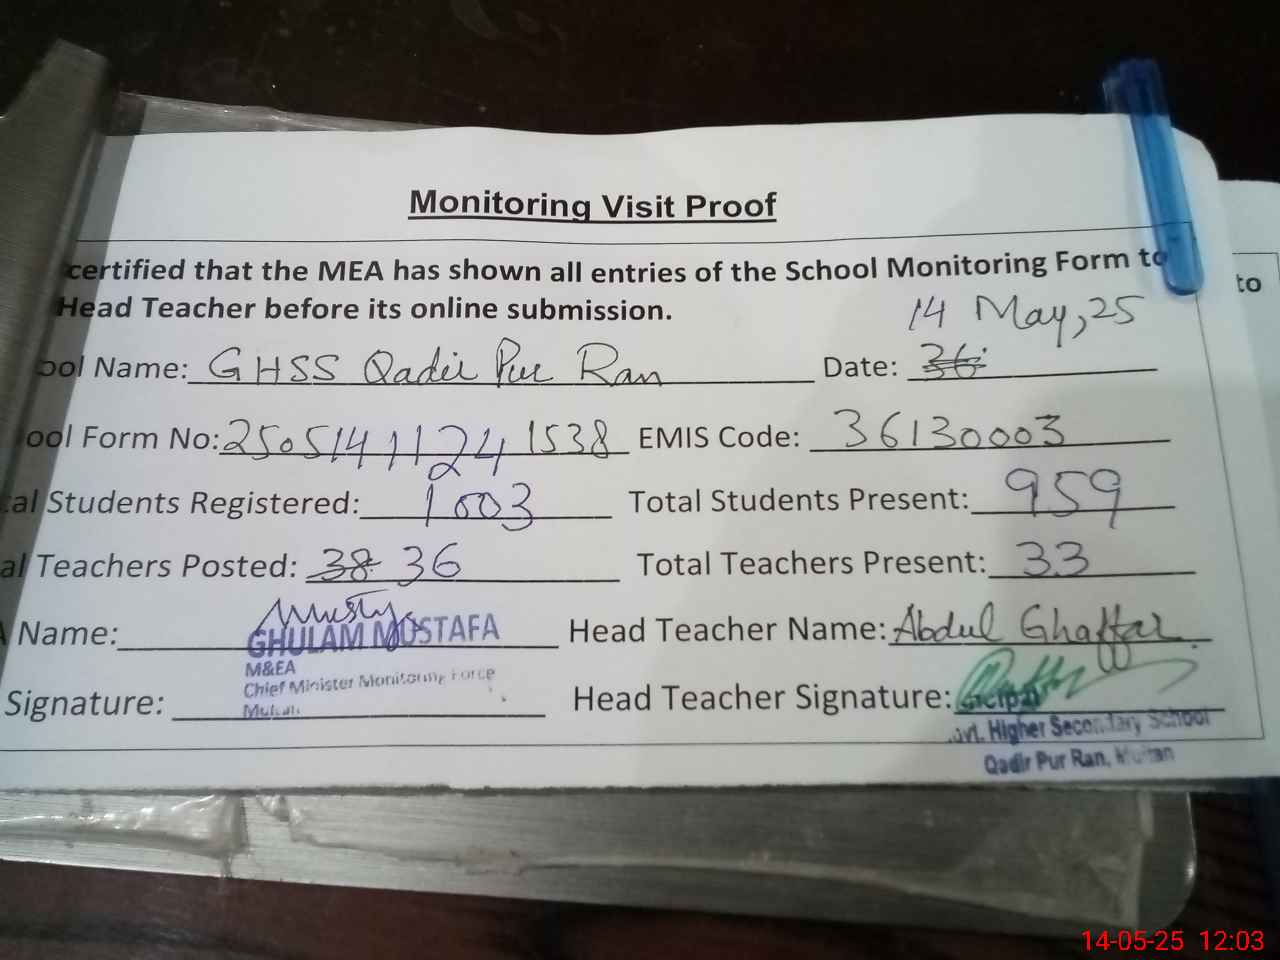 Monitoring Visit Proof
certified that the MEA has shown all entries of the School Monitoring Form to
to
Head Teacher before its online submission.
14 May, 25
ool Name: GHSS Qadir Pur Ran Date: 36
ool Form No: 2505141124 1538 EMIS Code: 36130003
al Students Registered: 1003 Total Students Present: 959
al Teachers Posted: 38 36 Total Teachers Present: 33
Name: GHULAM MUSTAFA Head Teacher Name: Abdul Ghaffar
M&EA
Chief Minister Monitoring Force
Signature: Head Teacher Signature:
ovt. Higher Secondary School
Qadir Pur Ran, Multan
14-05-25 12:03